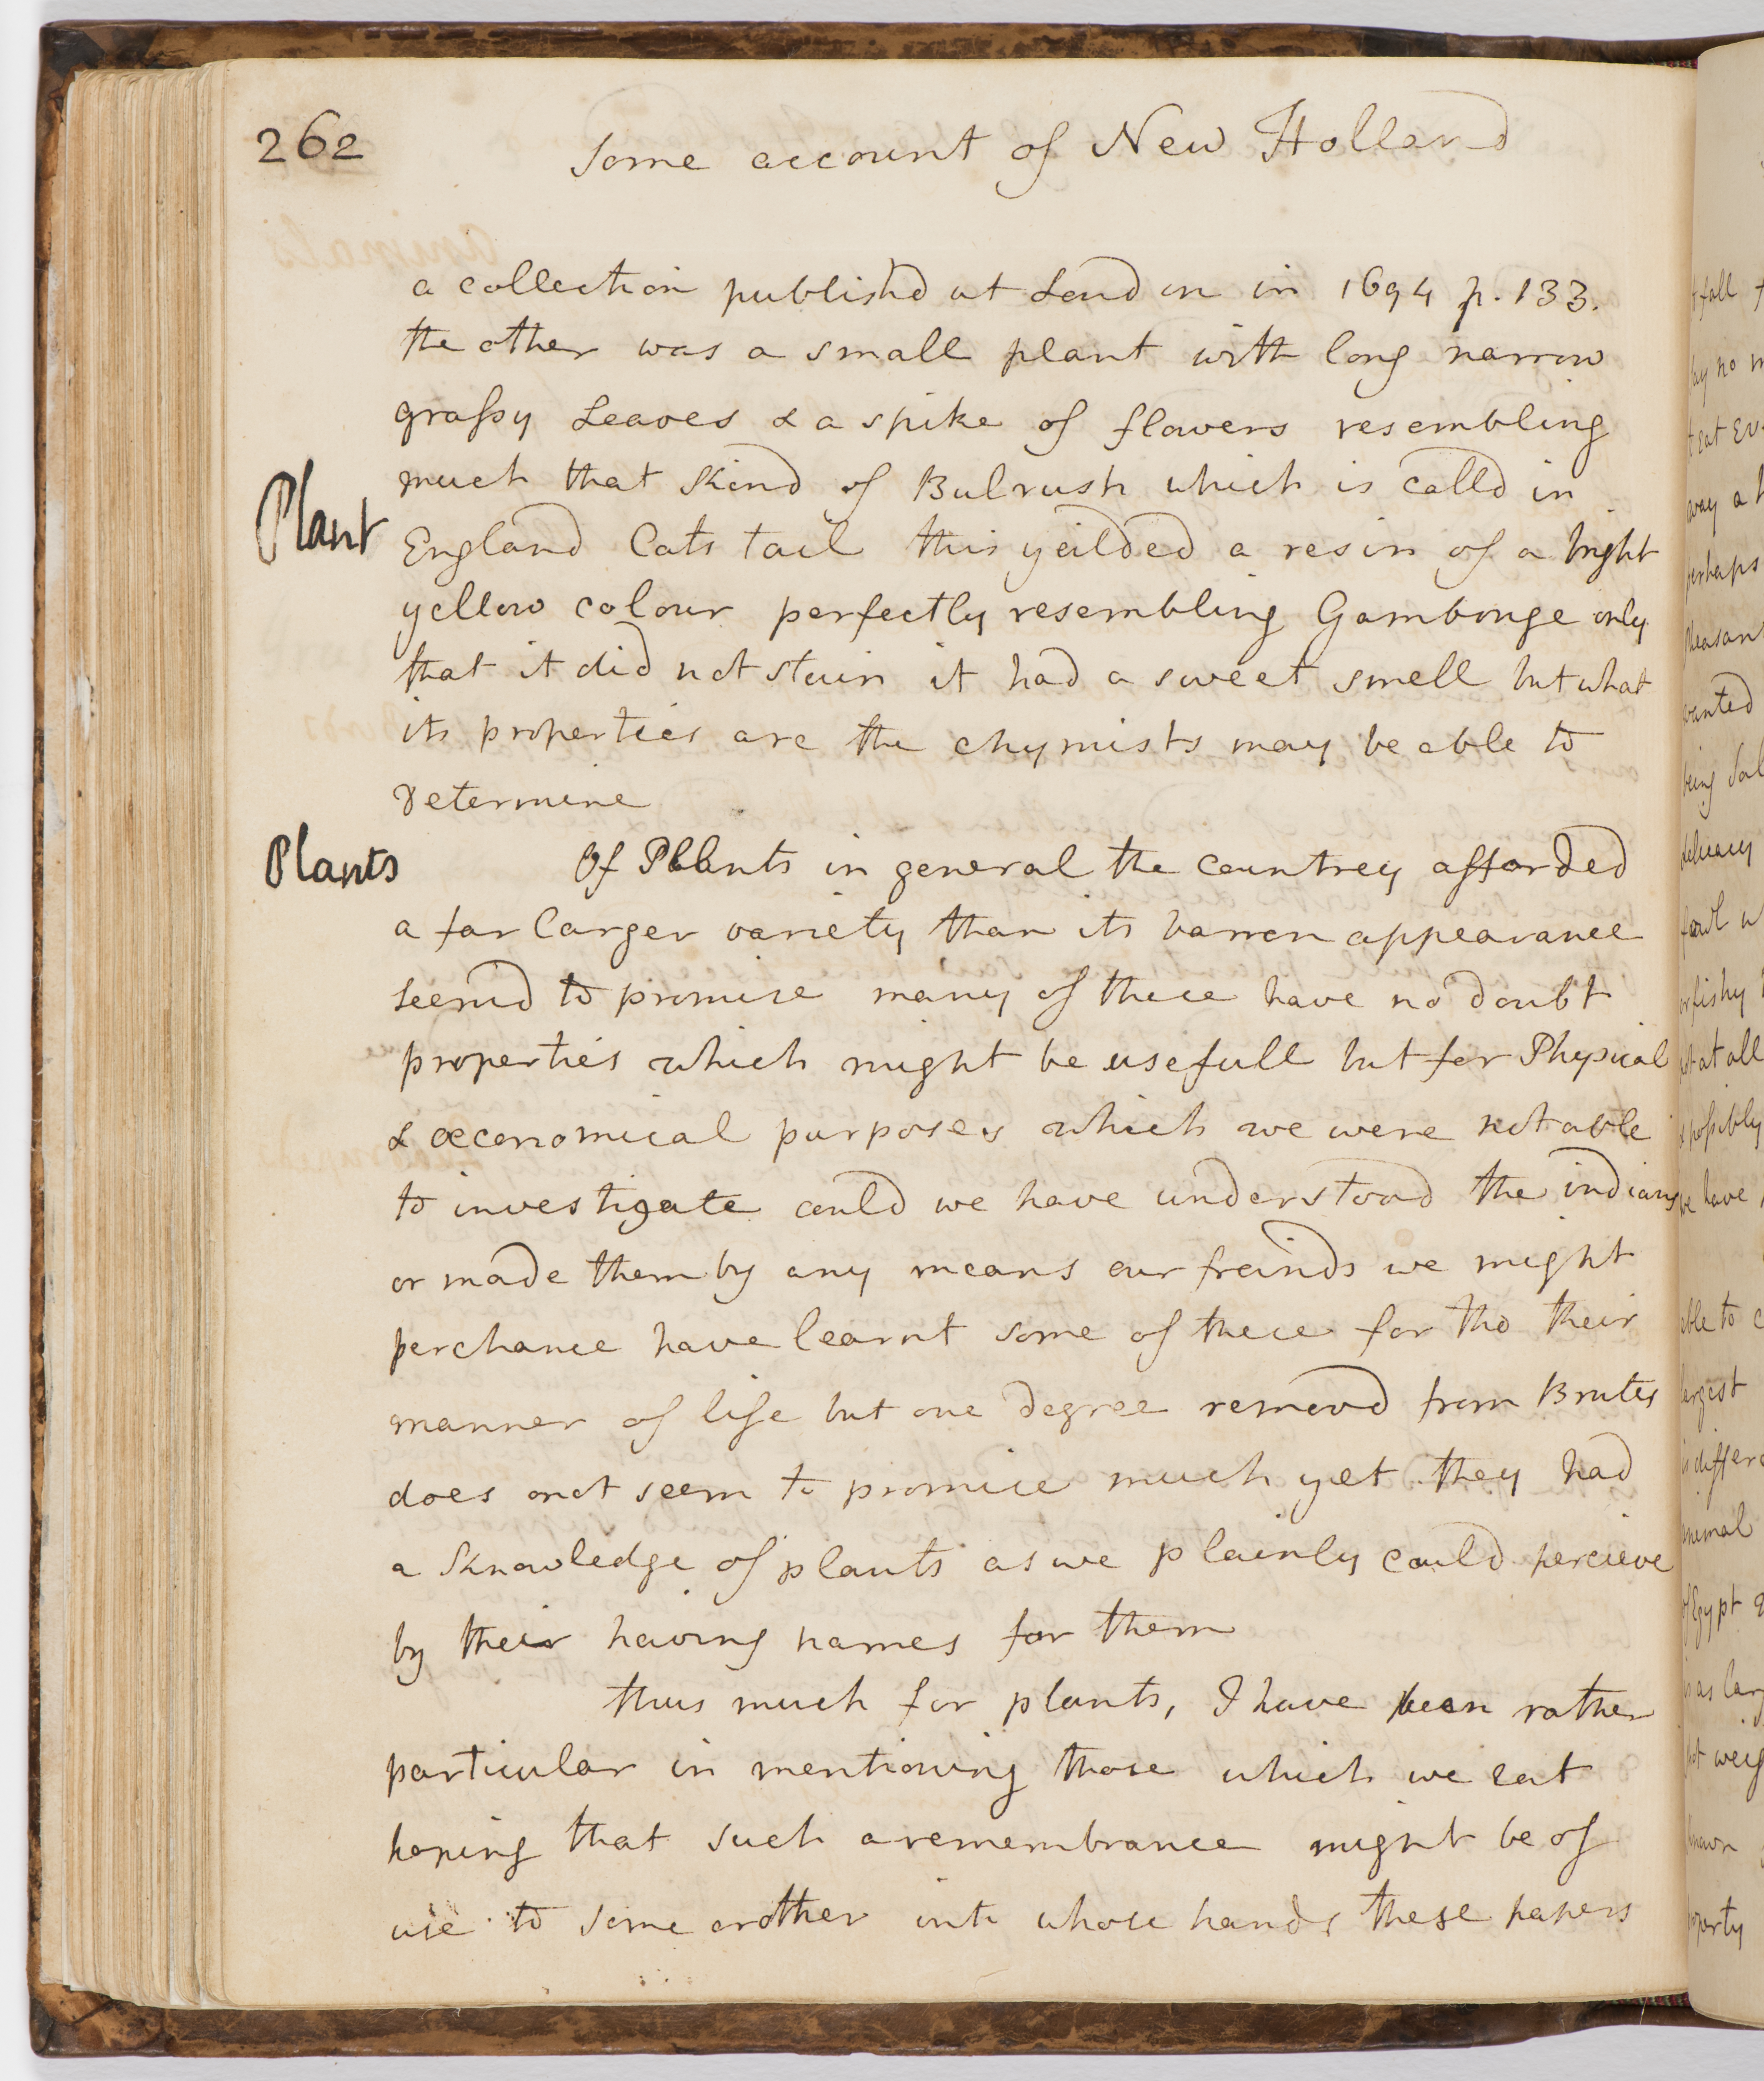 262
Some account of New Holland
a collection publishd at London in 1694 p. 133.
the other was a small plant with long narrow
grassy Leaves & a spike of flowers resembling
much that Kind of Bulrush which is calld in
Plant
England Cats tail this yeilded a resin of a bright
yellow colour perfectly resembling Gambouge only
that it did not stain it had a sweet smell but what
its properties are the chymists may be able to
determine
Plants
Of Plants in general the countrey afforded
a far larger variety than its barren appearance
seemd to promise many of these have no doubt
properties which might be usefull but for Physical
& œconomical purposes which we were not able
to investigate could we have understood the indians
or made them by any means our freinds we might
perchance have learnt some of these for tho their
manner of life but one degree removd from Brutes
does not seem to promise much yet they had
a Knowledge of plants as we plainly could percieve
by their having names for them
thus much for plants, I have been rather
particular in mentioning those which we eat
hoping that such a remembrance might be of
use to some or other into whose hands these papers